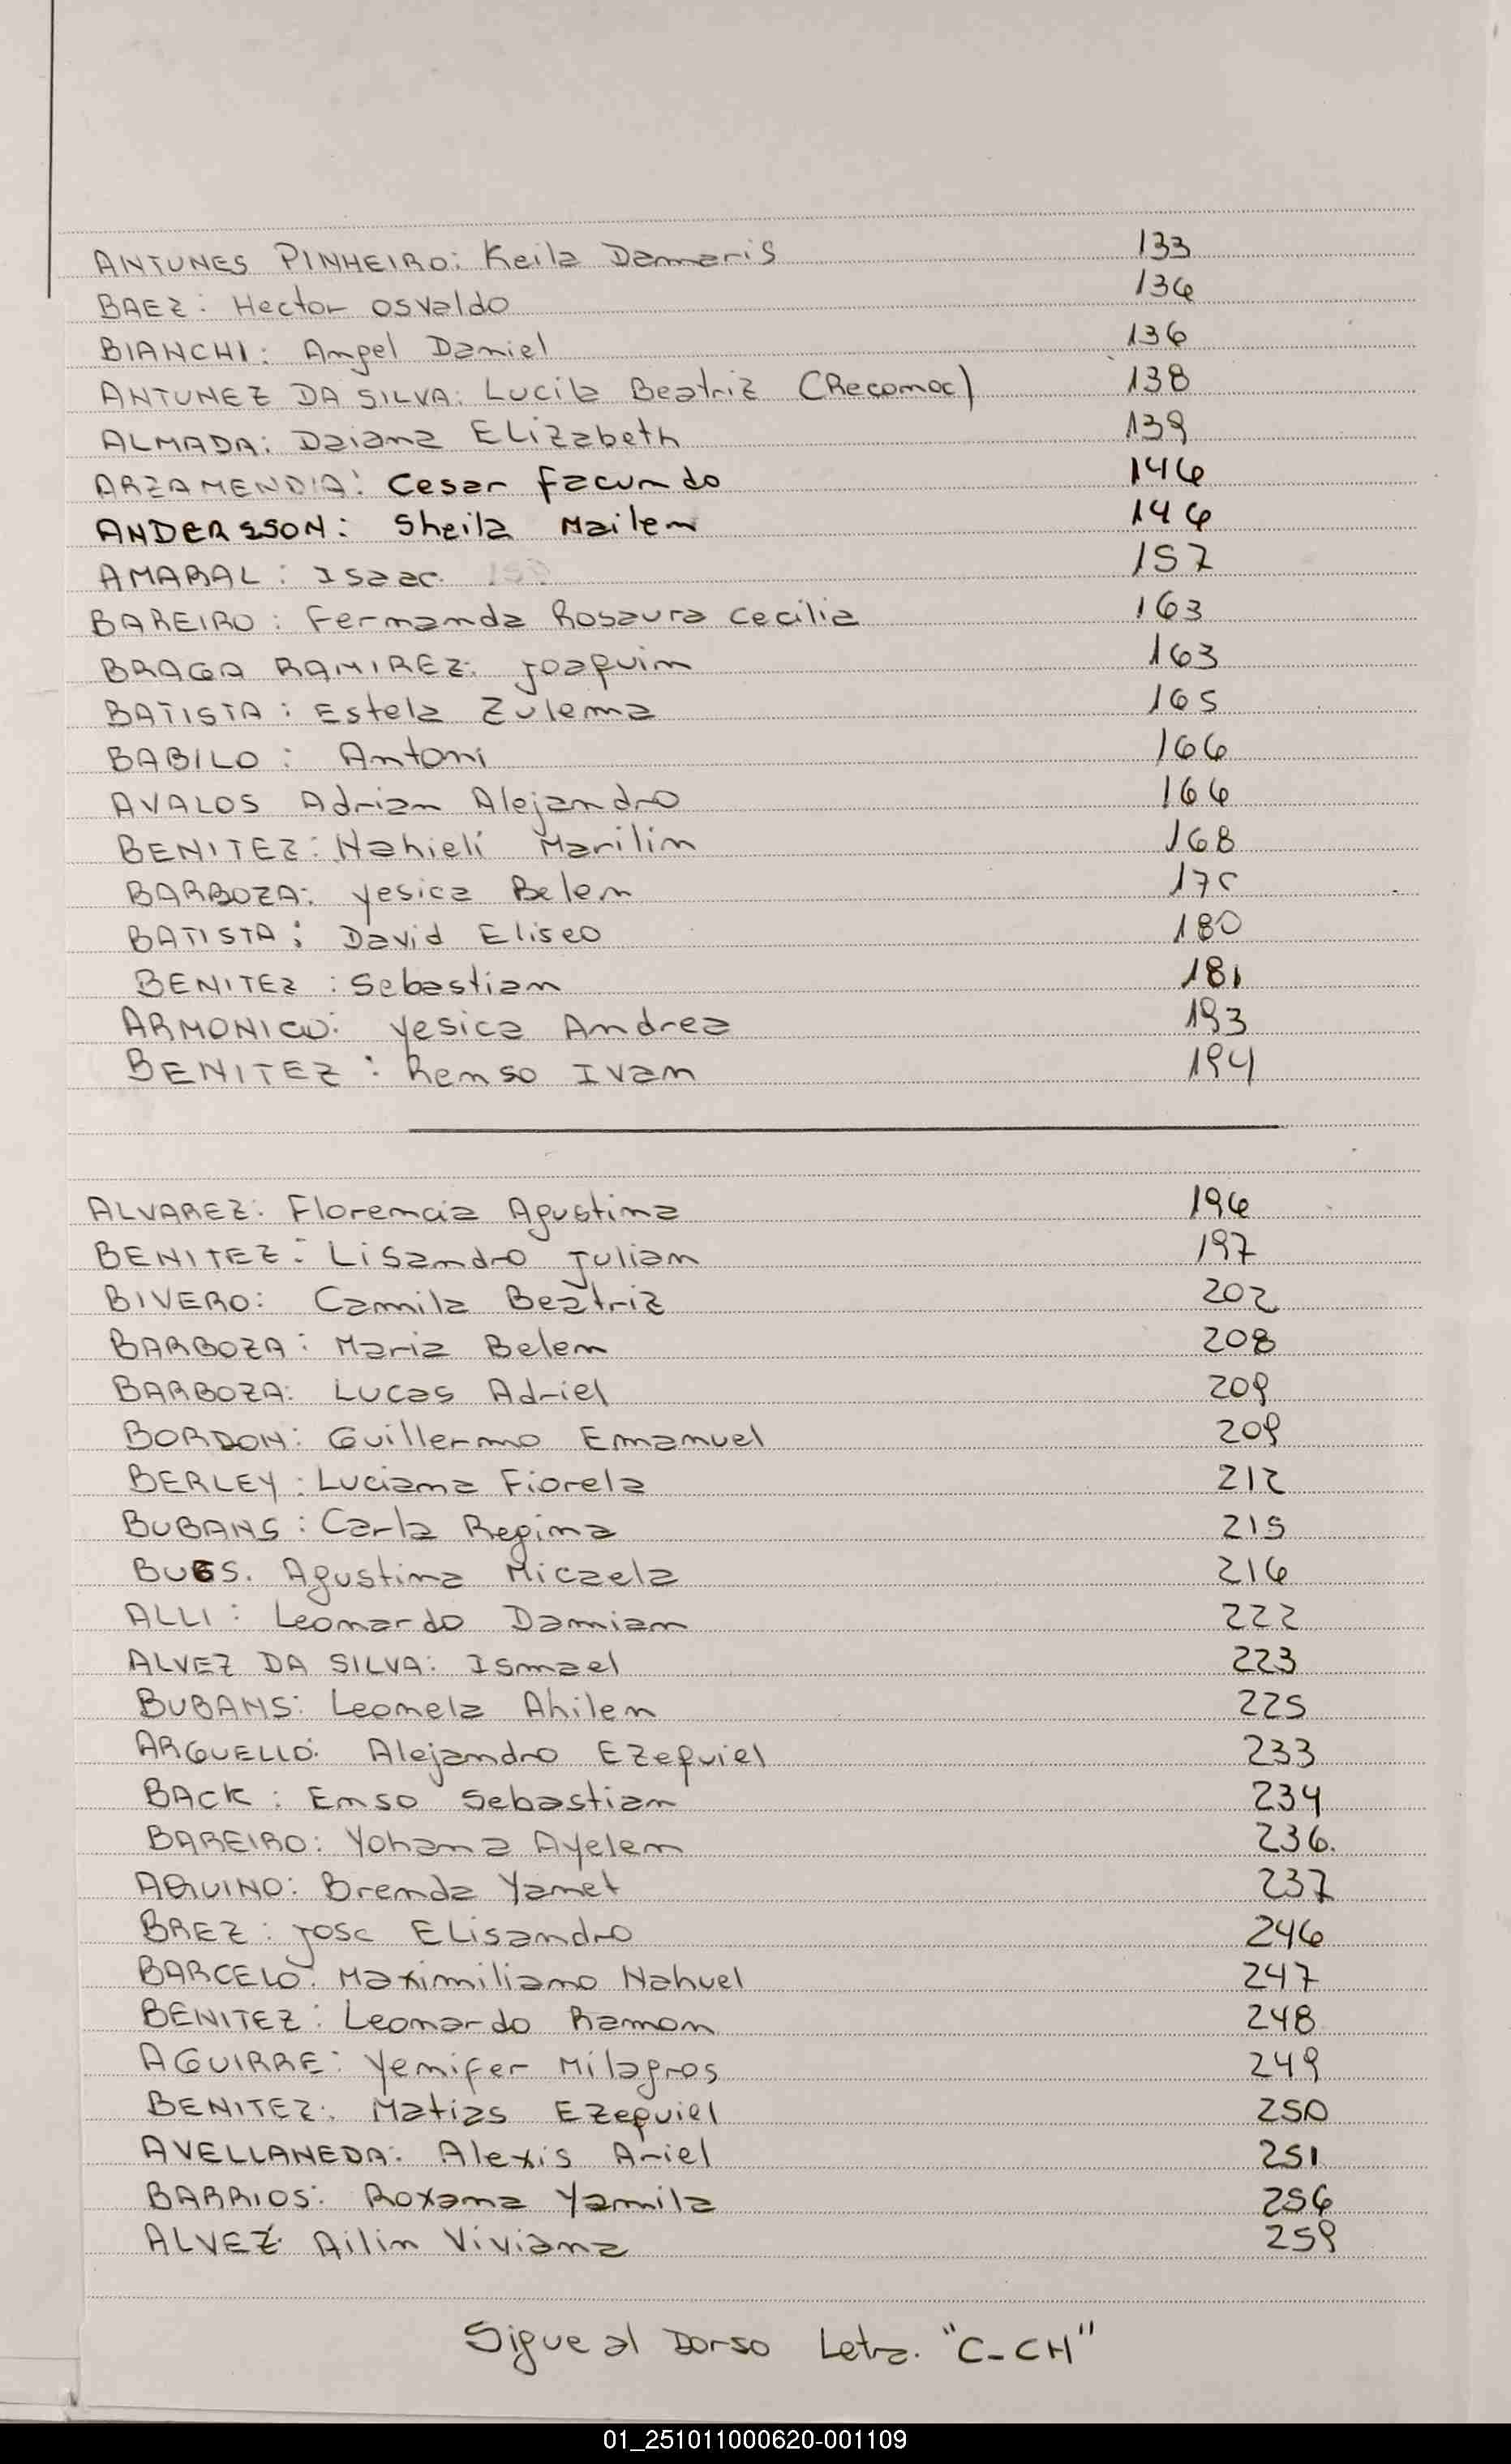 ANTUNES PINHEIRO: Keila Damaris 133
BAEZ: Hector Osvaldo 136
BIANCHI: Angel Daniel 136
ANTUNEZ DA SILVA: Lucila Beatriz (Reconoc) 138
ALMADA: Daiana Elizabeth 139
ARZAMENDIA: Cesar Facundo 146
ANDERSSON: Sheila Mailen 146
AMARAL: Isaac 157
BAREIRO: Fernanda Rosaura Cecilia 163
BRAGA RAMIREZ: Joaquin 163
BATISTA: Estela Zulema 165
BABILO: Antoni 166
AVALOS Adrian Alejandro 166
BENITEZ: Nahieli Marilin 168
BARBOZA: Yesica Belen
BATISTA: David Eliseo 180
BENITEZ: Sebastian 181
ARMONICO: Yesica Andrea 193
BENITEZ: Renso Ivan 194
ALVAREZ: Florencia Agustina 196
BENITEZ: Lisandro Julian 197
BIVERO: Camila Beatriz 202
BARBOZA: Maria Belen 208
BARBOZA: Lucas Adriel 209
BORDON: Guillermo Emanuel 209
BERLEY: Luciana Fiorela 212
BUBANS: Carla Regina 215
BUGS. Agustina Micaela 216
ALLI: Leonardo Damian 222
ALVEZ DA SILVA: Ismael 223
BUBANS: Leonela Ahilen 225
ARGUELLO: Alejandro Ezequiel 233
BACK: Enso Sebastian 234
BAREIRO: Yohana Ayelen 236.
AQUINO: Brenda Yanet 237
BAEZ: Jose Elisandro 246
BARCELO: Maximiliano Nahuel 247
BENITEZ: Leonardo Ramon 248
AGUIRRE: Yenifer Milagros 249
BENITEZ: Matias Ezequiel 250
AVELLANEDA: Alexis Ariel 251
BARRIOS: Roxana Yamila 256
ALVEZ Ailin Viviana 259
Sigue al Dorso Letra. "C-CH"
01_251011000620-001109